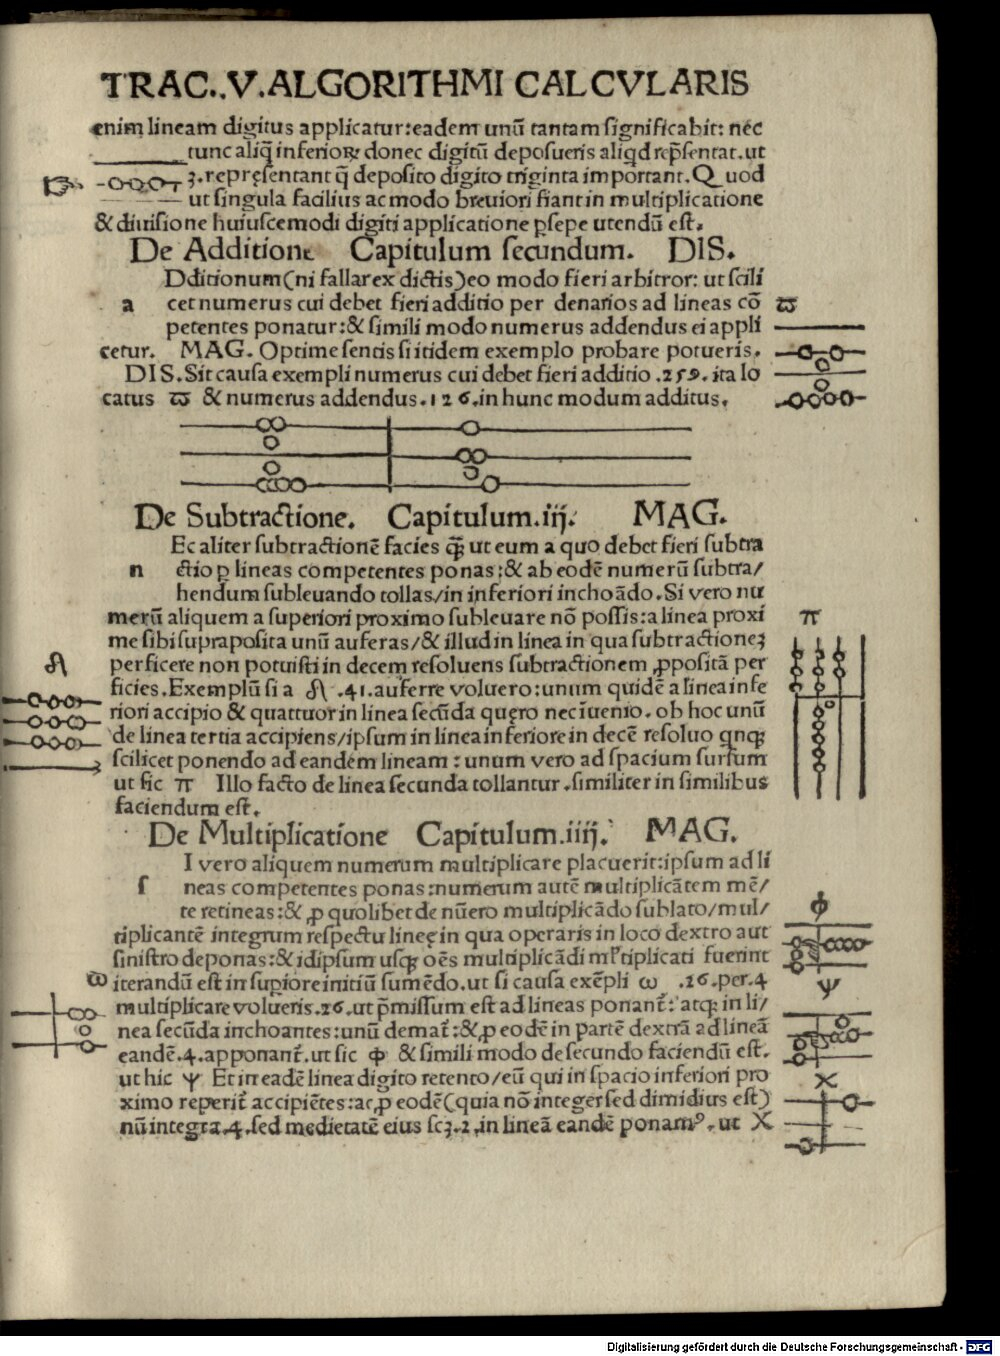 TRAC. V. ALGORITHMI CALCVLARIS
enim lineam digitus applicatur: eadem unū tantam significabit: nec
tunc aliq̄ inferioꝝ donec digitū deposueris aliqd rep̄sentat. ut
3. representant q̄ deposito digito triginta important. Quod
ut singula facilius ac modo breuiori fiant in multiplicatione
& diuisione huiuscemodi digiti applicatione p̱sepe utendū est.
De Additione Capitulum secundum. DIS.
Dditionum (ni fallar ex dictis) eo modo fieri arbitror: ut scili
a cet numerus cui debet fieri additio per denarios ad lineas cō
petentes ponatur: & simili modo numerus addendus ei appli
cetur. MAG. Optime sentis si itidem exemplo probare potueris.
DIS. Sit causa exempli numerus cui debet fieri additio .259. ita lo
catus ϖ & numerus addendus .126. in hunc modum additus.
ϖ
De Subtractione. Capitulum .iij. MAG.
Ec aliter subtractionē facies ꝙ̄ ut eum a quo debet fieri subtra
n ctio p̱ lineas competentes ponas: & ab eodē numerū subtra/
hendum subleuando tollas/ in inferiori inchoādo. Si vero nu
merū aliquem a superiori proximo subleuare nō possis: a linea proxi
me sibi supraposita unū auferas/ & illud in linea in qua subtractioneʒ
perficere non potuisti in decem resoluens subtractionem ꝓpositā per
ficies. Exemplū si a ᘐ .41. auferre voluero: unum quidē a linea infe
riori accipio & quattuor in linea secūda quęro nec īuenio. ob hoc unū
de linea tertia accipiens/ ipsum in linea inferiore in decē resoluo qnqꝫ
scilicet ponendo ad eandem lineam: unum vero ad spacium sursum
ut sic π Illo facto de linea secunda tollantur. similiter in similibus
faciendum est.
π
De Multiplicatione Capitulum .iiij. MAG.
I vero aliquem numerum multiplicare placuerit: ipsum ad li
s neas competentes ponas: numerum autē multiplicātem mē/
te retineas: & ꝓ quolibet de nūero multiplicādo sublato/ mul/
tiplicantē integrum respectu lineę in qua operaris in loco dextro aut
sinistro deponas: & idipsum usqꝫ oēs multiplicādi ml'tiplicati fuerint
iterandū est in supiore initiū sumēdo. ut si causa exēpli ω .26. per .4
multiplicare volueris .26. ut p̄missum est ad lineas ponant̄: atqꝫ in li/
nea secūda inchoantes: unū demat̄: & ꝓ eodē in partē dextrā ad lineā
eandē .4. apponant̄. ut sic φ & simili modo de secundo faciendū est.
ut hic ψ Et in eadē linea digito retento/ eū qui in spacio inferiori pro
ximo reperit̄ accipiētes: ac ꝓ eodē (quia nō integer sed dimidius est)
nū integra .4. sed medietatē eius scʒ .2. in lineā eandē ponam⁹. ut X
ω
φ
ψ
X
Digitalisierung gefördert durch die Deutsche Forschungsgemeinschaft - DFG